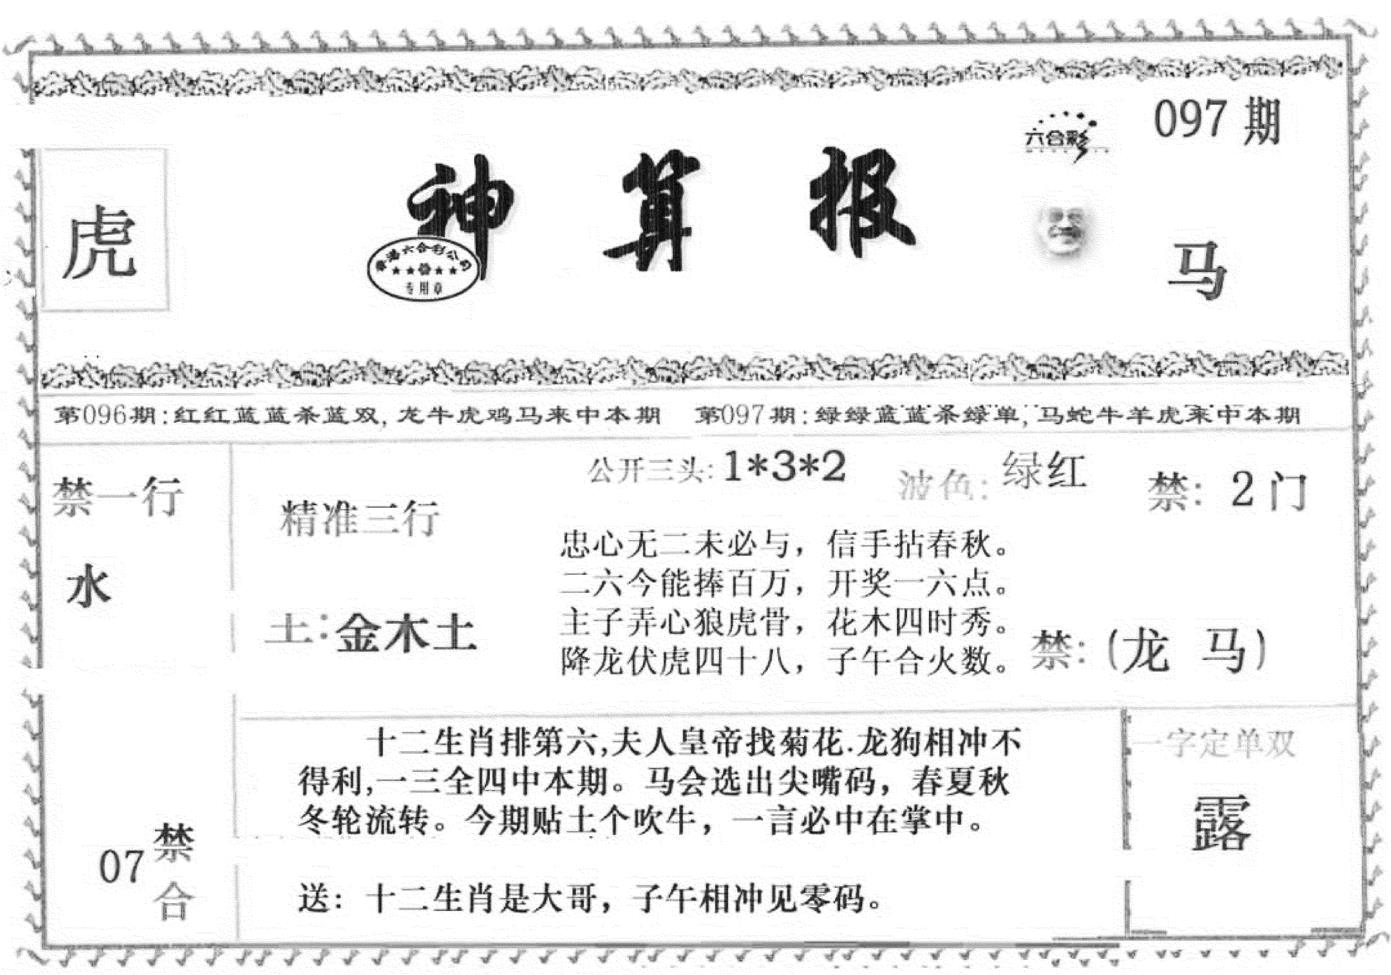 097期
六合彩
虎
神算报
香港六合彩公司
专用章
马
第096期:红红蓝蓝杀蓝双,龙牛虎鸡马来中本期 第097期:绿绿蓝蓝杀绿单,马蛇牛羊虎来中本期
禁一行
水
精准三行
土:金木土
公开三头:1*3*2 波色:绿红 禁:2门
忠心无二未必与，信手拈春秋。
二六今能捧百万，开奖一六点。
主子弄心狼虎骨，花木四时秀。
降龙伏虎四十八，子午合火数。
禁:(龙 马)
07禁合
十二生肖排第六,夫人皇帝找菊花.龙狗相冲不
得利,一三全四中本期。马会选出尖嘴码，春夏秋
冬轮流转。今期贴土个吹牛，一言必中在掌中。
送：十二生肖是大哥，子午相冲见零码。
一字定单双
露